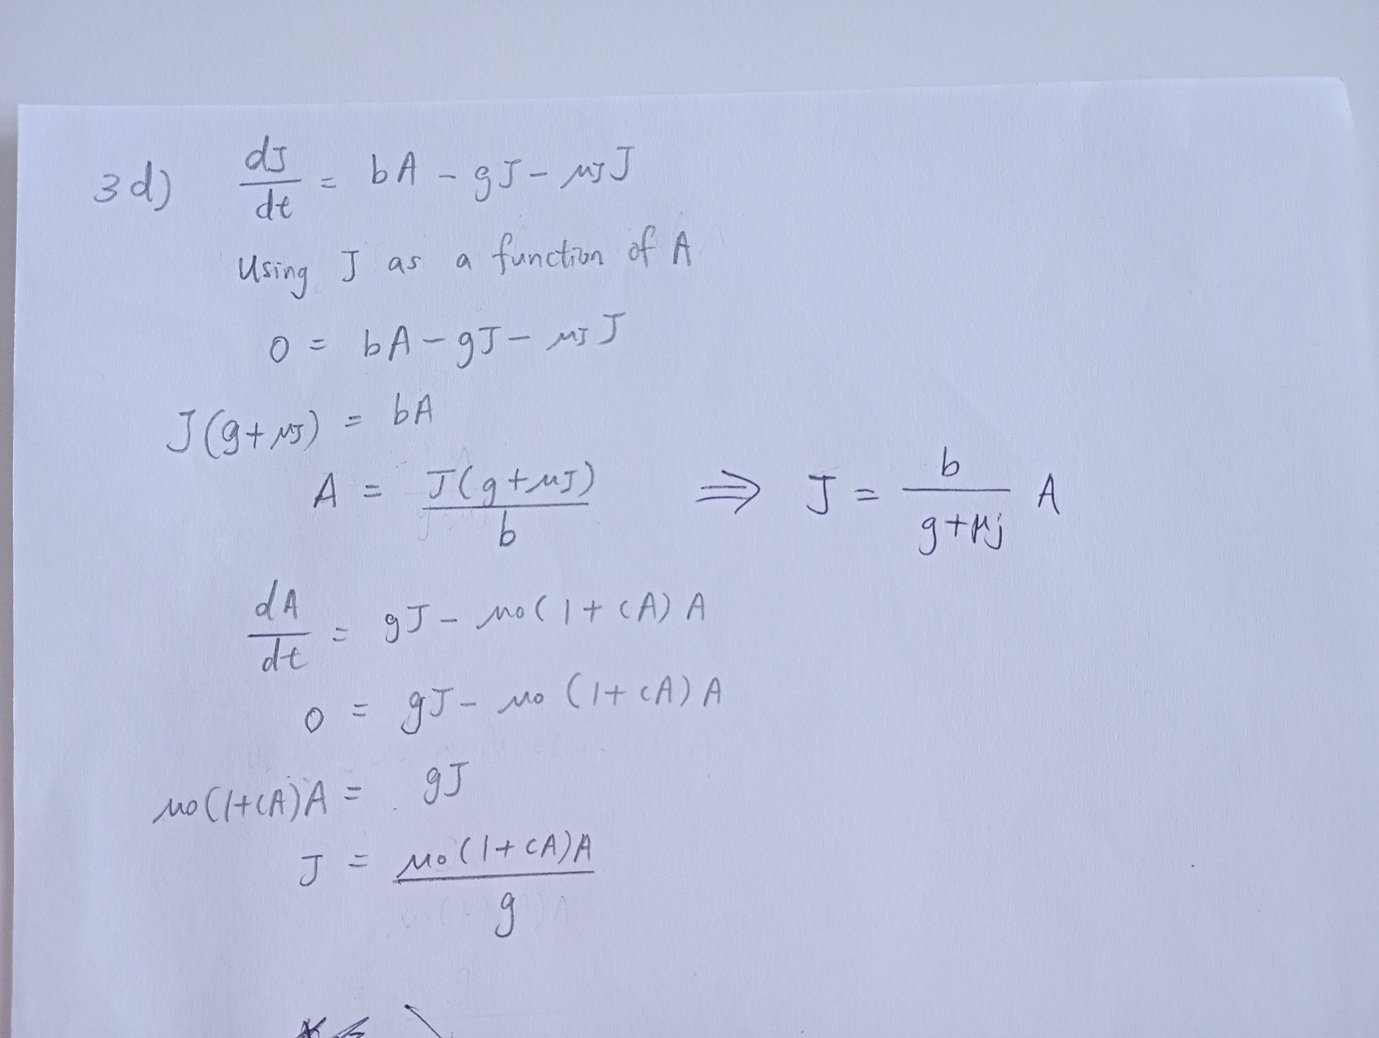 3d) dJ/dt = bA - gJ - μJ J
Using J as a function of A
0 = bA - gJ - μJ J
J(g+μJ) = bA
A = J(g+μJ)/b ⇒ J = b/(g+μj) A
dA/dt = gJ - μo(1+cA)A
0 = gJ - μo(1+cA)A
μo(1+cA)A = gJ
J = μo(1+cA)A/g